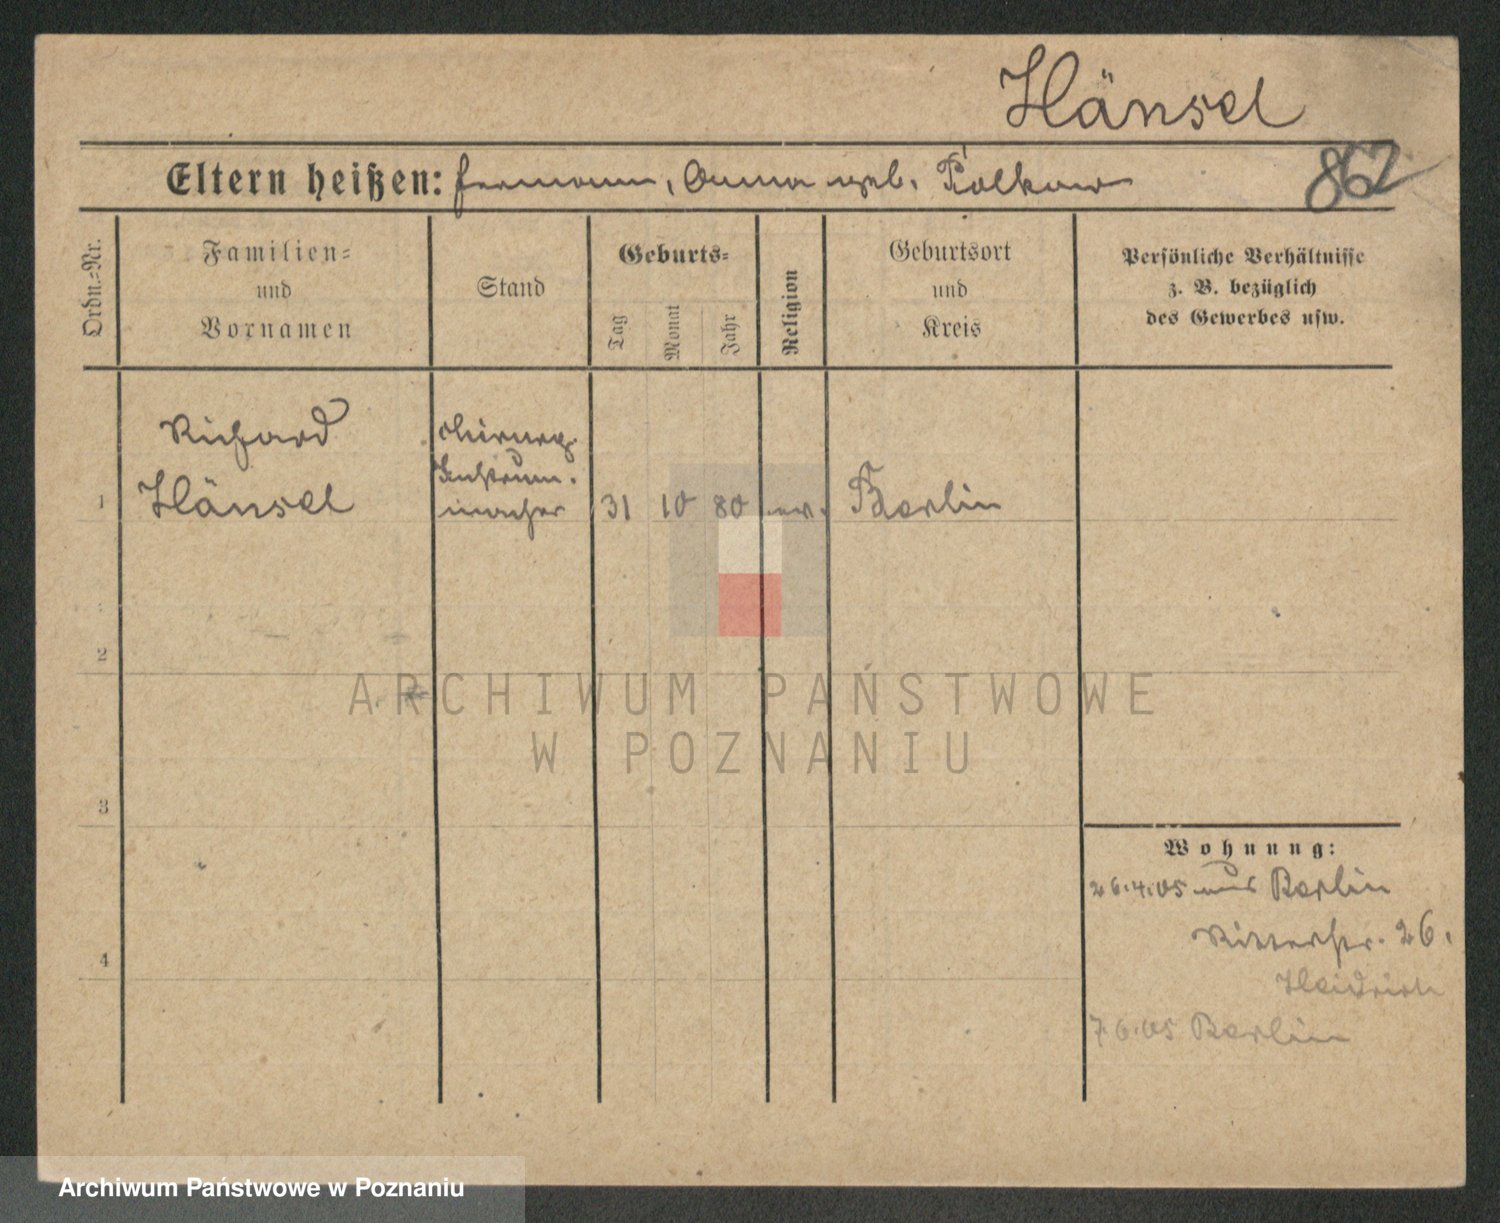 Hänsel
862
Eltern heißen: Hermann, Anna geb. Polkow
Ordn.=Nr.
Familien=
und
Vornamen
Stand
Geburts=
Tag
Monat
Jahr
Religion
Geburtsort
und
Kreis
Persönliche Verhältnisse
z. B. bezüglich
des Gewerbes usw.
1
Richard
Hänsel
chirurg.
Instrum.
macher
31 10 80 ev. Berlin
2
ARCHIWUM PAŃSTWOWE
W POZNANIU
3
Wohnung:
26.4.05 aus Berlin
Ritterstr. 26.
Heidrich
4
7.6.05 Berlin
Archiwum Państwowe w Poznaniu